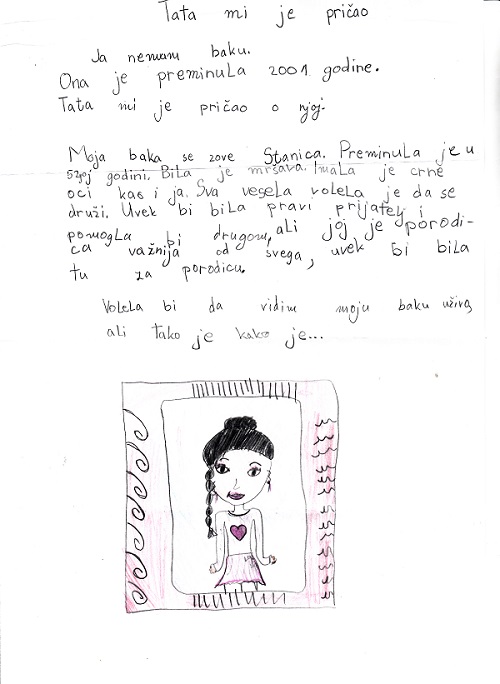 Tata mi je pričao
Ja nemam baku.
Ona je preminula 2001. godine.
Tata mi je pričao o njoj.
Moja baka se zove Stanica. Preminula je u
52goj godini. Bila je mršava. Imala je crne
oci kao i ja. Sva vesela volela je da se
druži. Uvek bi bila pravi prijatelj i
pomogla bi drugom, ali joj je porodi-
ca važnija od svega, uvek bi bila
tu za porodicu.
Volela bi da vidim moju baku uživo,
ali tako je kako je...